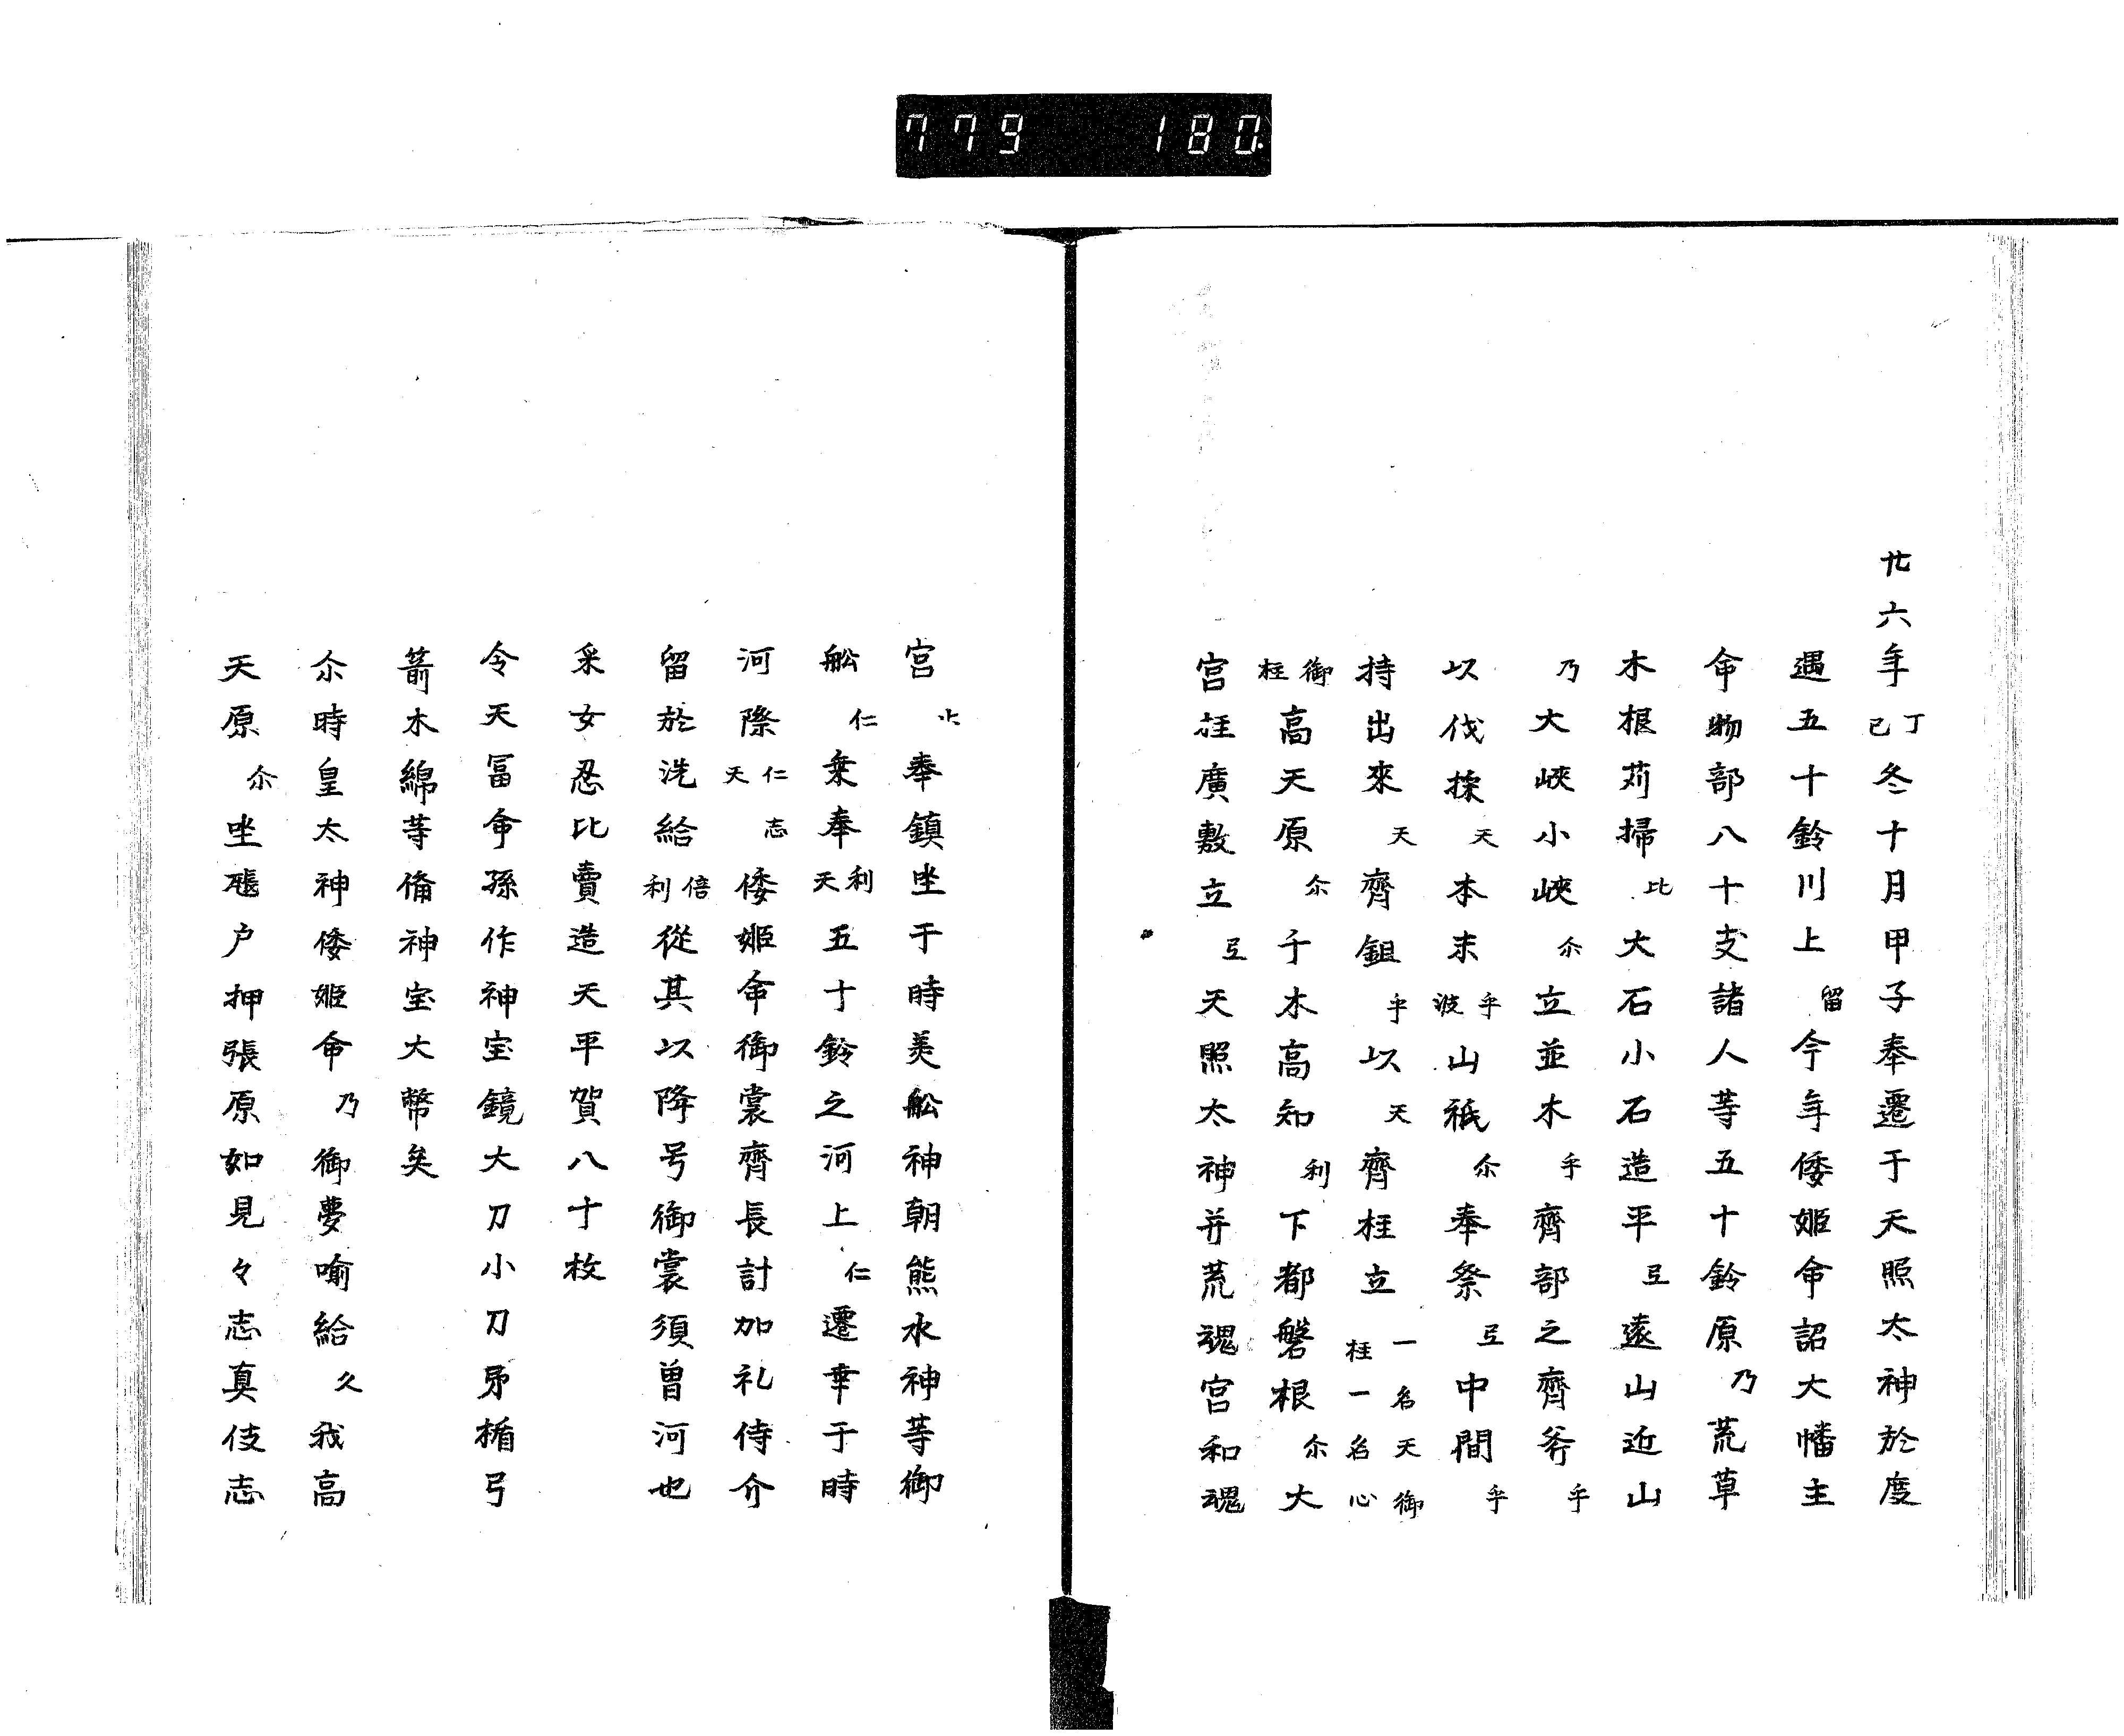 779 180
廿六年丁巳冬十月甲子奉遷于天照太神於度
遇五十鈴川上留今年倭姫命詔大幡主
命物部八十支諸人等五十鈴原乃荒草
木根苅掃比大石小石造平弖遠山近山
乃大峽小峽尓立並木乎齊部之齊斧乎
以伐採天本末乎波山祇尓奉祭弖中間乎
持出來天齊鉏乎以天齊柱立一名天御柱一名心
御柱高天原尓千木高知利下都磐根尓大
宮柱廣敷立弖天照太神并荒魂宮和魂
宮止奉鎮坐于時美舩神朝熊水神等御
舩仁乗奉利天五十鈴之河上仁遷幸于時
河際仁天志倭姫命御裳齊長計加礼侍介
留於洗給倍利從其以降号御裳須曽河也
采女忍比賣造天平賀八十枚
令天冨命孫作神宝鏡大刀小刀矛楯弓
箭木綿等備神宝大幣矣
尓時皇太神倭姫命乃御夢喻給久我高
天原尓坐𤭖戸押張原如見々志真伎志